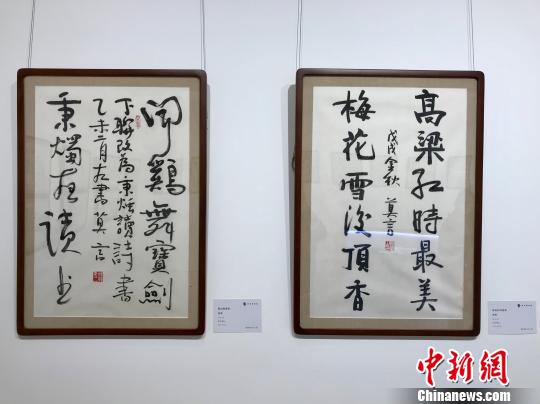 聞鷄舞寶劍
下聯改為秉燭讀詩書
乙未二月左書莫言
秉燭夜读书
高粱红時最美
戊戌金秋 莫言
梅花雪後頂香
中新网
Chinanews.com